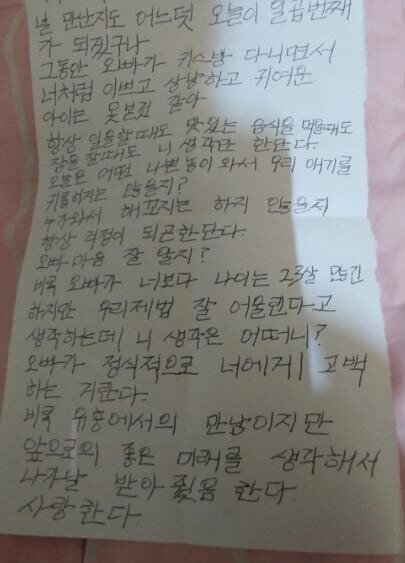 널 만난지도 어느덧 오늘이 일곱번째
가 되겠구나
그동안 오빠가 키스방 다니면서
너처럼 이쁘고 상냥하고 귀여운
아이는 못본것 같아
항상 일을할때도 맛있는 음식을 먹을때도
잠을 잘때도 니 생각만 한단다.
오늘은 어떤 나쁜놈이 와서 우리 애기를
괴롭히지는 않을지?
누가와서 해꼬지는 하지 않을지
항상 걱정이 되곤한단다.
오빠마음 잘 알지?
비록 오빠가 너보다 나이는 23살 많긴
하지만 우리제법 잘 어울린다고
생각하는데 니 생각은 어떠니?
오빠가 정식적으로 너에게 고백
하는 거란다.
비록 유흥에서의 만남이지만
앞으로의 좋은 미래를 생각해서
나가날 받아줬음 한다.
사랑한다